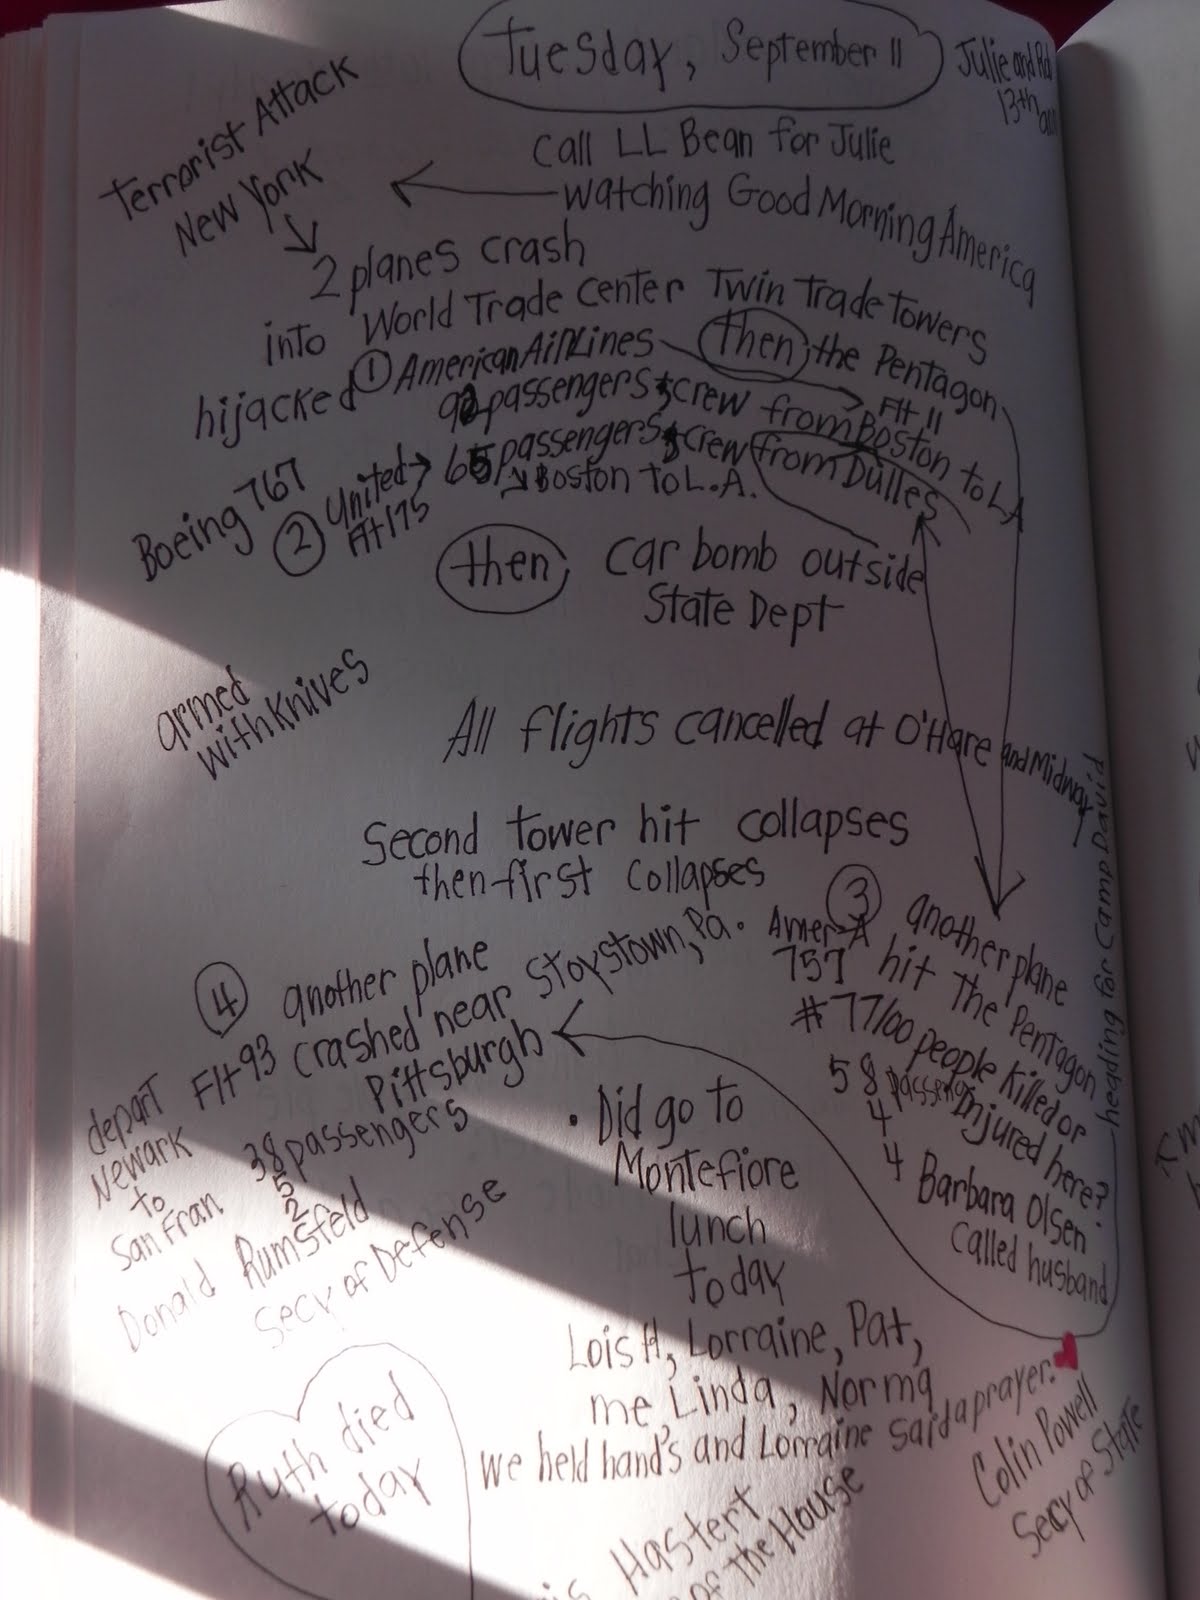 Tuesday, September 11
Julie and Rob
13th
call LL Bean for Julie
watching Good Morning America
Terrorist Attack
New York
2 planes crash
into World Trade Center Twin Trade Towers
hijacked ① American AirLines then, the Pentagon
92 passengers & crew from Boston to LA
Flt 11
Boeing 767
② United → 65 passengers & crew from Dulles
Flt 175
Boston to L.A.
then, car bomb outside
State Dept
armed
with knives
All flights cancelled at O'Hare and Midway
Second tower hit collapses
then first collapses
③ another plane
Amer. A hit The Pentagon
757
#77 100 people killed or
injured here?
58 passengers
4
4
Barbara Olsen
called husband
heading for Camp David
④ another plane
Flt 93 crashed near Stoystown, Pa.
Pittsburgh
depart
Newark
to
San Fran.
38 passengers
5
2
Donald Rumsfeld
Secy of Defense
• Did go to
Montefiore
lunch
today
Lois H, Lorraine, Pat,
me, Linda, Norma
we held hand's and Lorraine said a prayer.
Colin Powell
Secy of State
Ruth died
today
Hastert
of the House